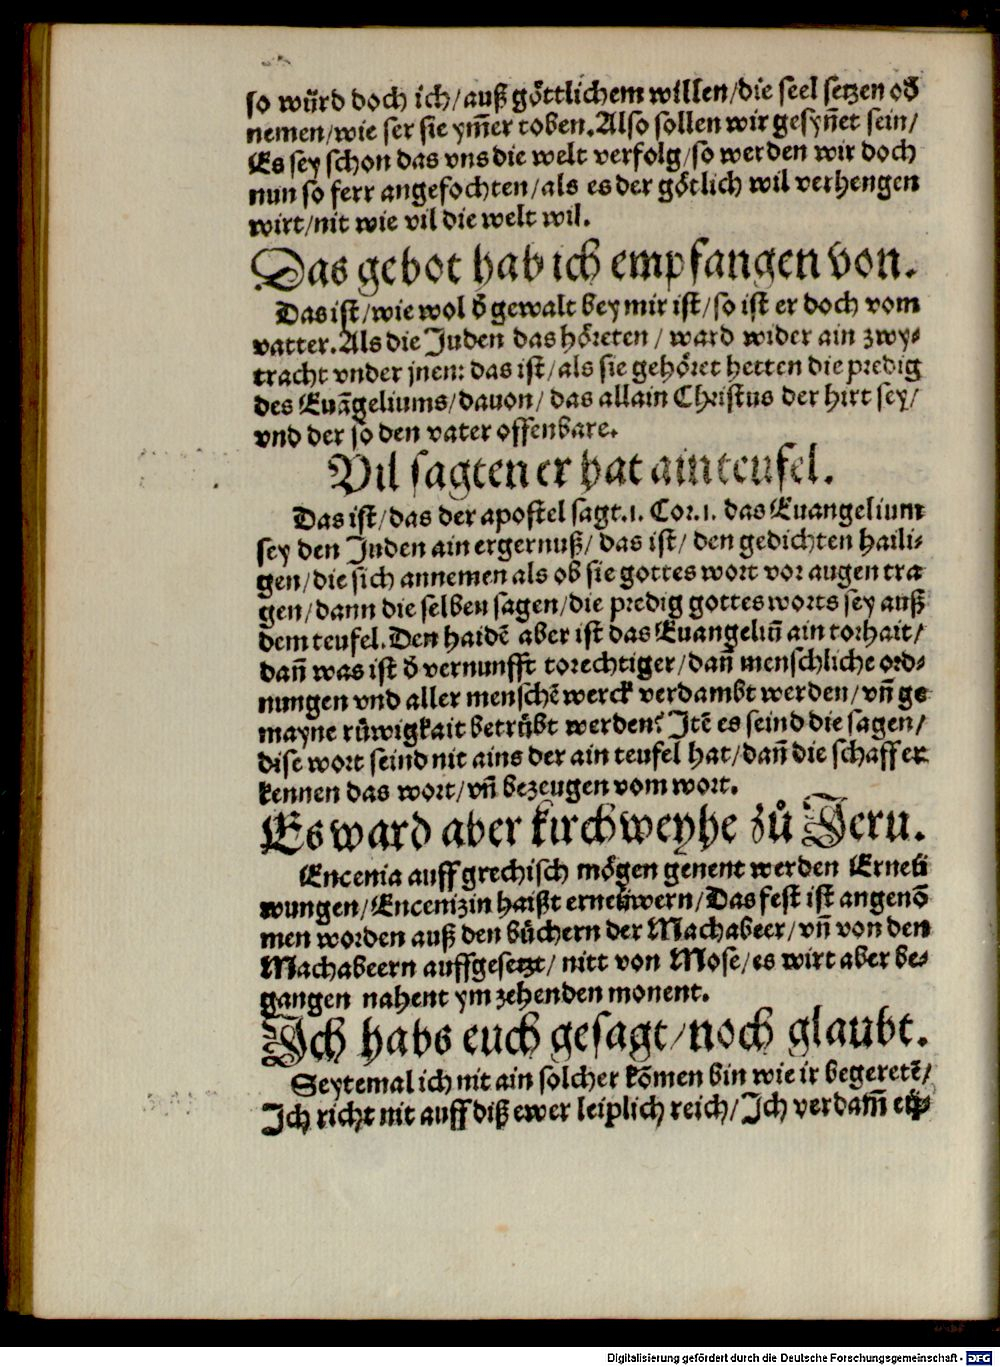 so wuͤrd doch ich/auß goͤttlichem willen/die seel setzen oď
nemen/wie ser sie ym̃er toben.Also sollen wir gesyñet sein/
Es sey schon das vns die welt verfolg/so werden wir doch
nun so ferr angefochten/als es der goͤtlich wil verhengen
wirt/nit wie vil die welt wil.
Das gebot hab ich empfangen von.
Das ist/wie wol ď gewalt bey mir ist/so ist er doch vom
vatter.Als die Juden das hoͤreten/ ward wider ain zwy⸗
tracht vnder jnen: das ist/als sie gehoͤret hetten die predig
des Euãgeliums/dauon/ das allain Christus der hirt sey/
vnd der so den vater offenbare.
Vil sagten er hat ain teufel.
Das ist/das der apostel sagt.1. Cor.1. das Euangelium
sey den Juden ain ergernuß/ das ist/ den gedichten haili⸗
gen/die sich annemen als ob sie gottes wort vor augen tra
gen/dann die selben sagen/die predig gottes worts sey auß
dem teufel.Den haidẽ aber ist das Euangeliũ ain torhait/
dañ was ist ď vernunfft torechtiger/dañ menschliche ord⸗
nungen vnd aller menschẽ werck verdambt werden/vñ ge
mayne ruͤwigkait betruͤbt werden? Jtẽ es seind die sagen/
dise wort seind nit ains der ain teufel hat/dañ die schaff er
kennen das wort/vñ bezeugen vom wort.
Es ward aber kirchweyhe zů Jeru.
Encenia auff grechisch moͤgen genent werden Erneuͤ
wungen/Encenizin haißt erneuͤwern/Das fest ist angenõ
men worden auß den buͤchern der Machabeer/vñ von den
Machabeern auffgesetzt/ nitt von Mose/es wirt aber be⸗
gangen nahent ym zehenden monent.
Ich habs euch gesagt/noch glaubt.
Seytemal ich nit ain solcher kõmen bin wie ir begeretẽ/
Ich richt nit auff diß ewer leiplich reich/Ich verdam̃
Digitalisierung gefördert durch die Deutsche Forschungsgemeinschaft - DFG